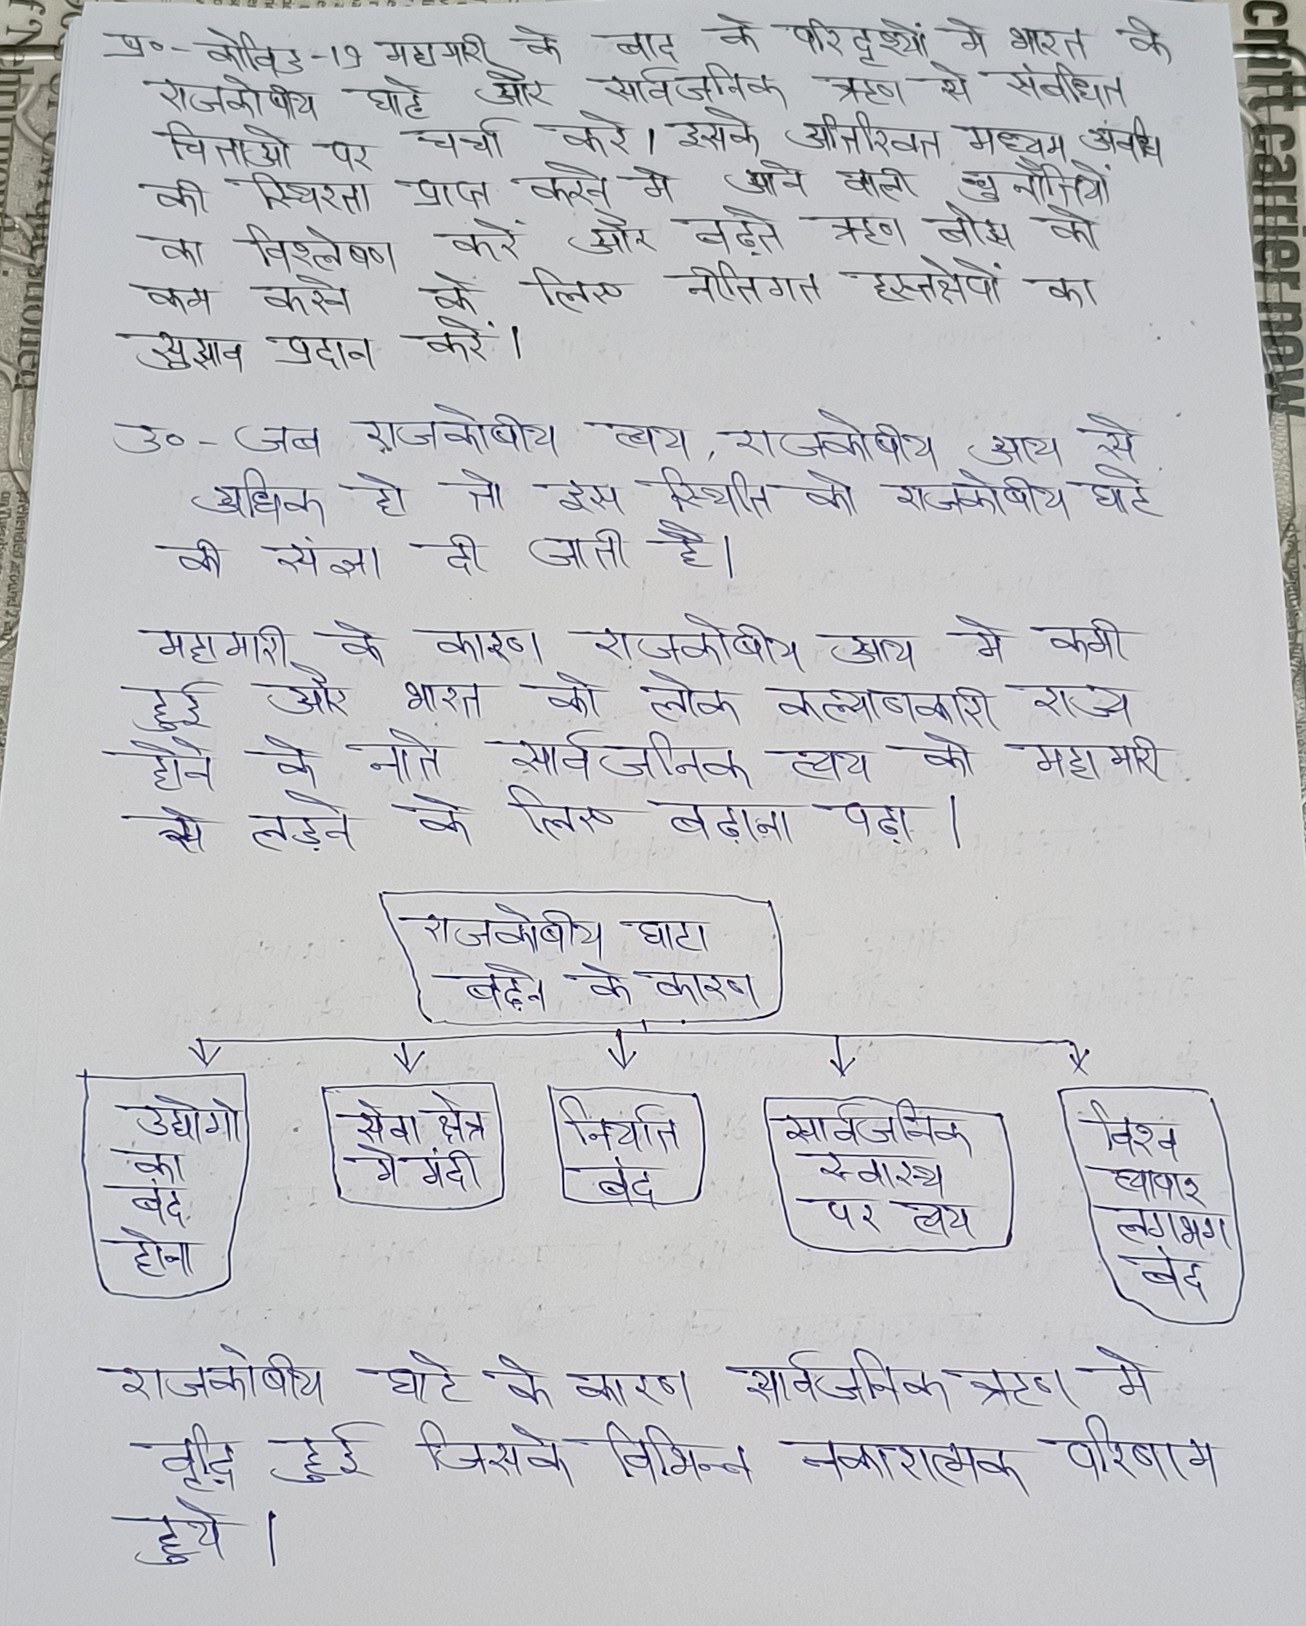 प्र०- कोविड-19 महामारी के बाद के परिदृश्यों मे भारत के
राजकोषीय घाटे और सार्वजनिक ऋण से संबंधित
चिंताओ पर चर्चा करे। इसके अतिरिक्त मध्यम अवधि
की स्थिरता प्राप्त करने मे आने वाली चुनौतियों
का विश्लेषण करें और बढ़ते ऋण बोझ को
कम करने के लिए नीतिगत हस्तक्षेपों का
सुझाव प्रदान करें।
उ०- जब राजकोषीय व्यय, राजकोषीय आय से
अधिक हो तो इस स्थिति को राजकोषीय घाटे
की संज्ञा दी जाती है।
महामारी के कारण राजकोषीय आय मे कमी
हुई और भारत को लोक कल्याणकारी राज्य
होने के नाते सार्वजनिक व्यय को महामारी
से लड़ने के लिए बढ़ाना पढ़ा।
राजकोषीय घाटा
बढ़ने के कारण
उद्योगो
का
बंद
होना
सेवा क्षेत्र
मे मंदी
निर्यात
बंद
सार्वजनिक
स्वास्थ्य
पर व्यय
विश्व
व्यापार
लगभग
बंद
राजकोषीय घाटे के कारण सार्वजनिक ऋण मे
वृद्धि हुई जिसके विभिन्न नकारात्मक परिणाम
हुये।
cnftt carrier now